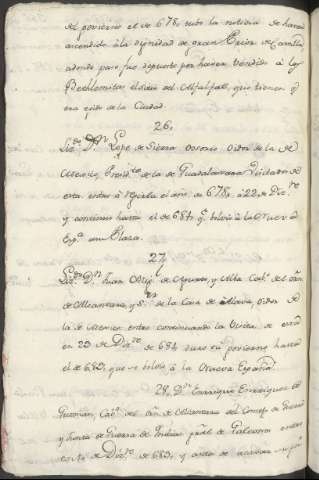 el govierno el de 678, tubo la noticia de haver
ascendido à la dignidad de gran Prior de Castilla
adonde paso fue depuesto por haver vendido à los
Bethlemitas el Sitio del Alfalfal, que tienen
este ejido de la Ciudad.
26,
Lic.do D.n Lope de Sierra Osorio Oidor de la de
Mexico, Presid.te de la de Guadalaxara Visitador de
esta, entro à regirla el año de 678, à 22 de Diz.re
y continuo hasta el de 684, q.e bolvio à la Nueva
Esp.a a su Plaza.
27,
Lic.do D.n Juan Mig.l de Agurto, y Alba Cab.o del Orn.
de Alcantara, y S.or de la Casa de Alava, Oidor de
la de Mexico entro continuando la Visita de esta
en 23 de Diz.re de 684, duro su govierno hasta
el de 683, que se bolvio à la Nueva España.
28, D.n Enrrique Enrriquez de
Guzman, Cab.o del Orn. de Alcantara del Consejo de Guerra
y Junta de Guerra de Indias entro
en de Diz.re de 683, y antes de acavar su